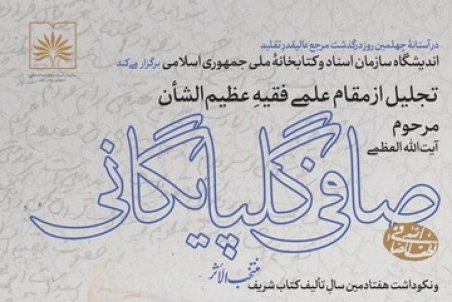 در آستانهٔ چهلمین روز درگذشت مرجع عالیقدر تقلید
اندیشگاه سازمان اسناد و کتابخانهٔ ملی جمهوری اسلامی برگزار می‌کند
تجلیل از مقام علمی فقیهِ عظیم الشأن
مرحوم
آیت الله العظمی
صافی گلپایگانی
و نکوداشت هفتادمین سالِ تألیف کتاب شریف
منتخب الأثر